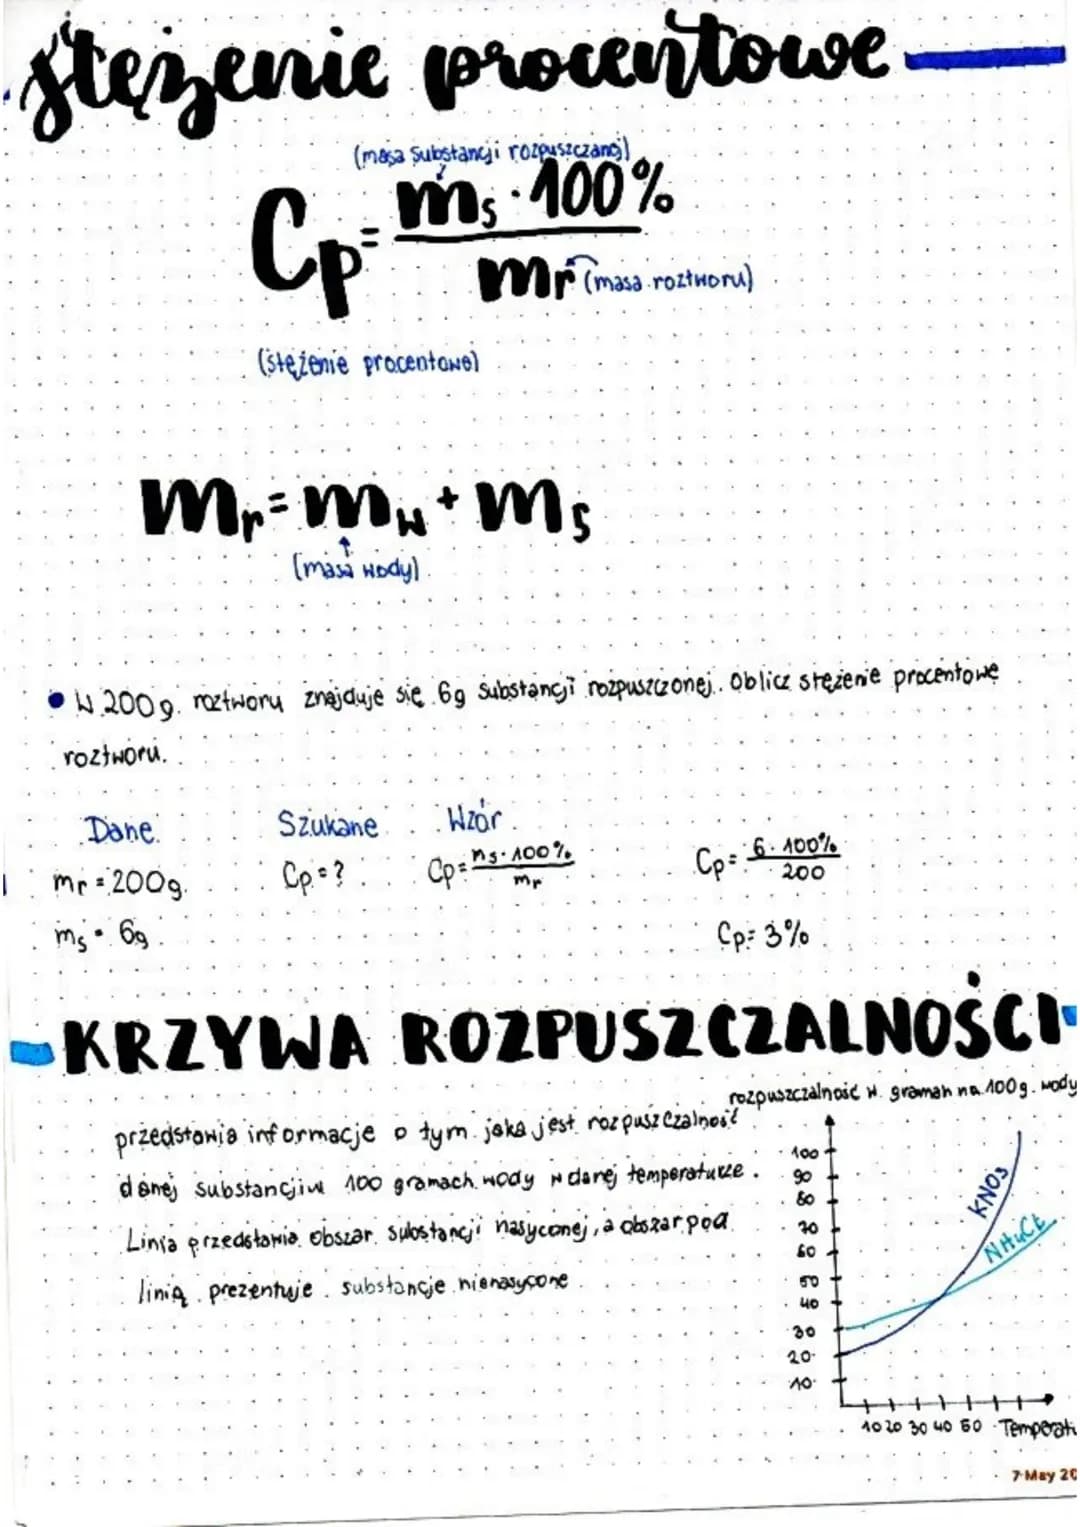 stężenie procentowe
(masa substancji rozpuszczanej)
Cp = ms · 100%
mr (masa roztworu)
(stężenie procentowe)
mr = mw + ms
(masa wody)
• W 200g. roztworu znajduje się 6g substancji rozpuszczonej. Oblicz stężenie procentowe
roztworu.
Dane Szukane Wzór
mr = 200g. Cp = ? Cp = ms · 100% / mr Cp = 6 · 100% / 200
ms = 6g
Cp = 3%
KRZYWA ROZPUSZCZALNOŚCI
rozpuszczalność w gramah na 100g. wody
przedstawia informacje o tym jaka jest rozpuszczalność
danej substancji w 100 gramach wody w danej temperaturze.
Linia przedstawia obszar substancji nasyconej, a obszar pod
linią prezentuje substancje nienasycone
100
90
80
70
60
50
40
30
20
10
KNO3
NH4Cl
10 20 30 40 50 Temperatu
7 May 20